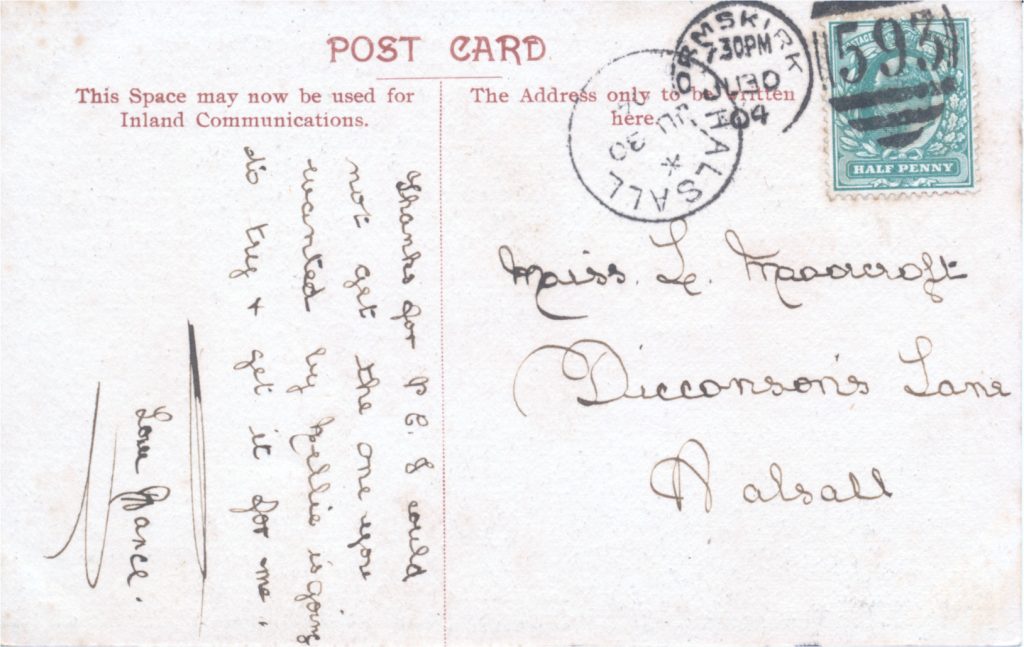 POST CARD
This Space may now be used for
Inland Communications.
The Address only to be written
here.
Thanks for P C I could
not get the one
wanted by Nellie is going
to try + get it for me.
Love Nance.
Miss. L. Moorcroft
Dicconson's Lane
Halsall
ORMSKIRK
30PM
JU 30
04
HALSALL
JU 30
593
HALF PENNY